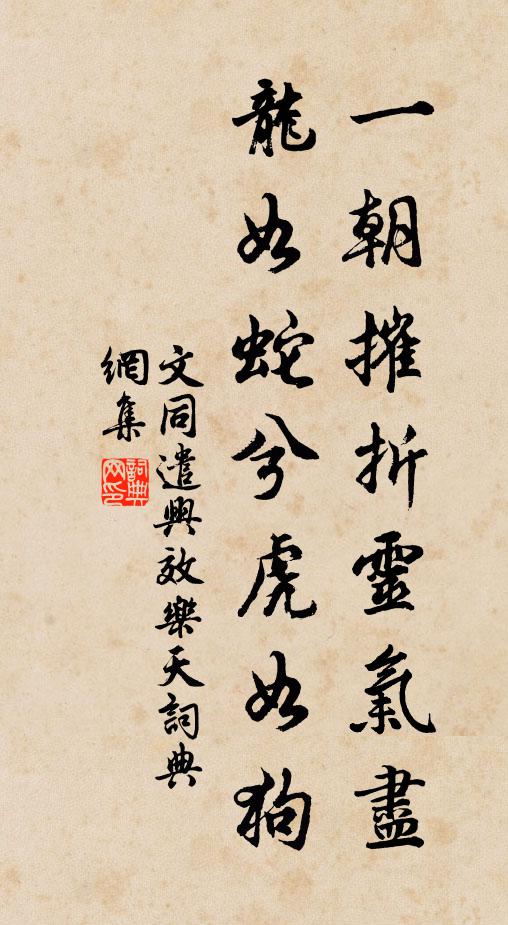 一朝摧折靈氣盡
龍如蛇兮虎如狗
文同遣興效樂天詞典
網集
詞典
网印